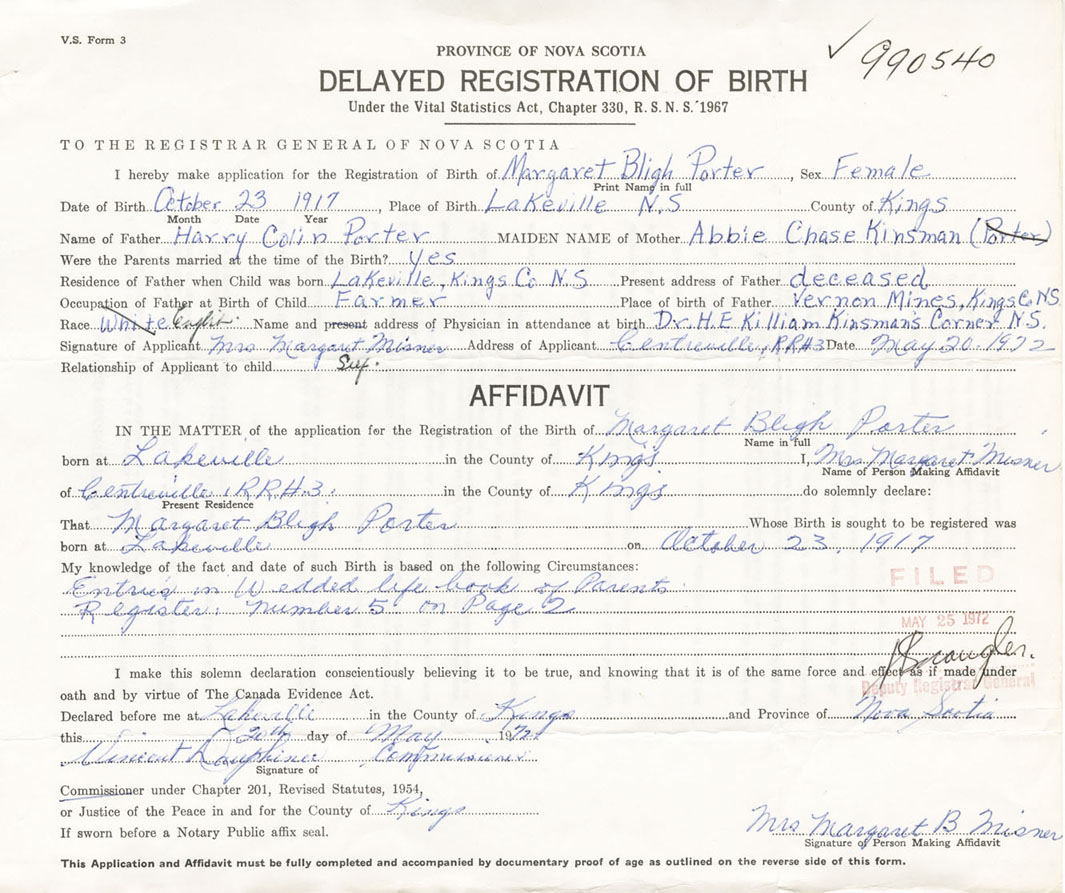 V.S. Form 3
✓ 990540
PROVINCE OF NOVA SCOTIA
DELAYED REGISTRATION OF BIRTH
Under the Vital Statistics Act, Chapter 330, R.S.N.S. 1967
TO THE REGISTRAR GENERAL OF NOVA SCOTIA
I hereby make application for the Registration of Birth of Margaret Bligh Porter, Sex Female
Print Name in full
Date of Birth October 23 1917, Place of Birth Lakeville N.S County of Kings
Month Date Year
Name of Father Harry Colin Porter MAIDEN NAME of Mother Abbie Chase Kinsman (Porter)
Were the Parents married at the time of the Birth? yes
Residence of Father when Child was born Lakeville, Kings Co N.S Present address of Father deceased
Occupation of Father at Birth of Child Farmer Place of birth of Father Vernon Mines, Kings Co NS
Race White English Name and present address of Physician in attendance at birth Dr. H.E Killiam Kinsman's Corner N.S.
Signature of Applicant Mrs Margaret Misner Address of Applicant Centreville, RR#3 Date May 20 1972
Relationship of Applicant to child Self.
AFFIDAVIT
IN THE MATTER of the application for the Registration of the Birth of Margaret Bligh Porter
Name in full
born at Lakeville in the County of Kings I, Mrs Margaret Misner
Name of Person Making Affidavit
of Centreville, RR#3. in the County of Kings do solemnly declare:
Present Residence
That Margaret Bligh Porter Whose Birth is sought to be registered was
born at Lakeville on October 23, 1917
My knowledge of the fact and date of such Birth is based on the following Circumstances:
Entries in Wedded life book of Parents
Register: number 5 on Page 2
FILED
MAY 25 1972
I make this solemn declaration conscientiously believing it to be true, and knowing that it is of the same force and effect as if made under
Deputy Registrar General
oath and by virtue of The Canada Evidence Act.
Declared before me at Lakeville in the County of Kings and Province of Nova Scotia
this 20th day of May 1972
Vincent Dauphinee Commissioner
Signature of
Commissioner under Chapter 201, Revised Statutes, 1954,
or Justice of the Peace in and for the County of Kings
If sworn before a Notary Public affix seal.
Mrs Margaret B Misner
Signature of Person Making Affidavit
This Application and Affidavit must be fully completed and accompanied by documentary proof of age as outlined on the reverse side of this form.